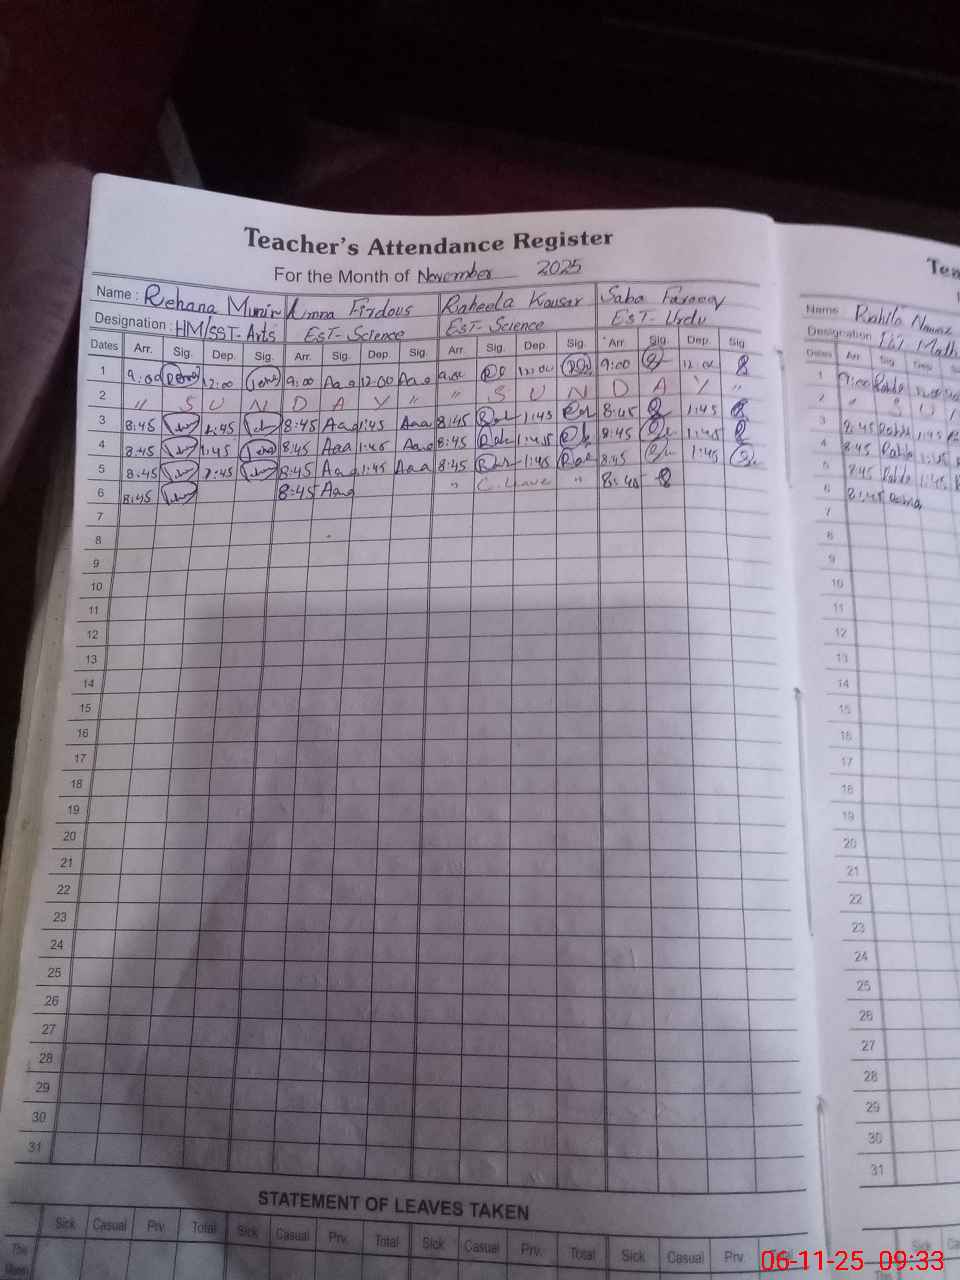 Teacher's Attendance Register
For the Month of November 2025
Name : Rehana Munir Amna Firdous Raheela Kousar Saba Farooq
Designation : HM/SST-Arts EST-Science EST-Science EST-Urdu
Dates Arr. Sig. Dep. Sig. Arr. Sig. Dep. Sig. Arr. Sig. Dep. Sig. Arr. Sig. Dep. Sig.
1 9:00 12:00 9:00 Aaa 12:00 Aaa 9:00 12:00 9:00 12:00
2 " S U N D A Y " " S U N D A Y "
3 8:45 1:45 8:45 Aaa 1:45 Aaa 8:45 1:45 8:45 1:45
4 8:45 1:45 8:45 Aaa 1:45 Aaa 8:45 1:45 8:45 1:45
5 8:45 1:45 8:45 Aaa 1:45 Aaa 8:45 1:45 8:45 1:45
6 8:45 8:45 Aaa " C. Leave " 8:45
7
8
9
10
11
12
13
14
15
16
17
18
19
20
21
22
23
24
25
26
27
28
29
30
31
STATEMENT OF LEAVES TAKEN
Sick Casual Prv. Total Sick Casual Prv. Total Sick Casual Prv. Total Sick Casual Prv. Total
This Month
Tea
Name Rahila Nawaz
Designation Math
Dates Arr Sig Dep
1 9:00
2 " S U N
3 8:45 1:45
4 8:45 1:45
5 8:45 1:45
6 8:45
7
8
9
10
11
12
13
14
15
16
17
18
19
20
21
22
23
24
25
26
27
28
29
30
31
Sick Ca
This
06-11-25 09:33